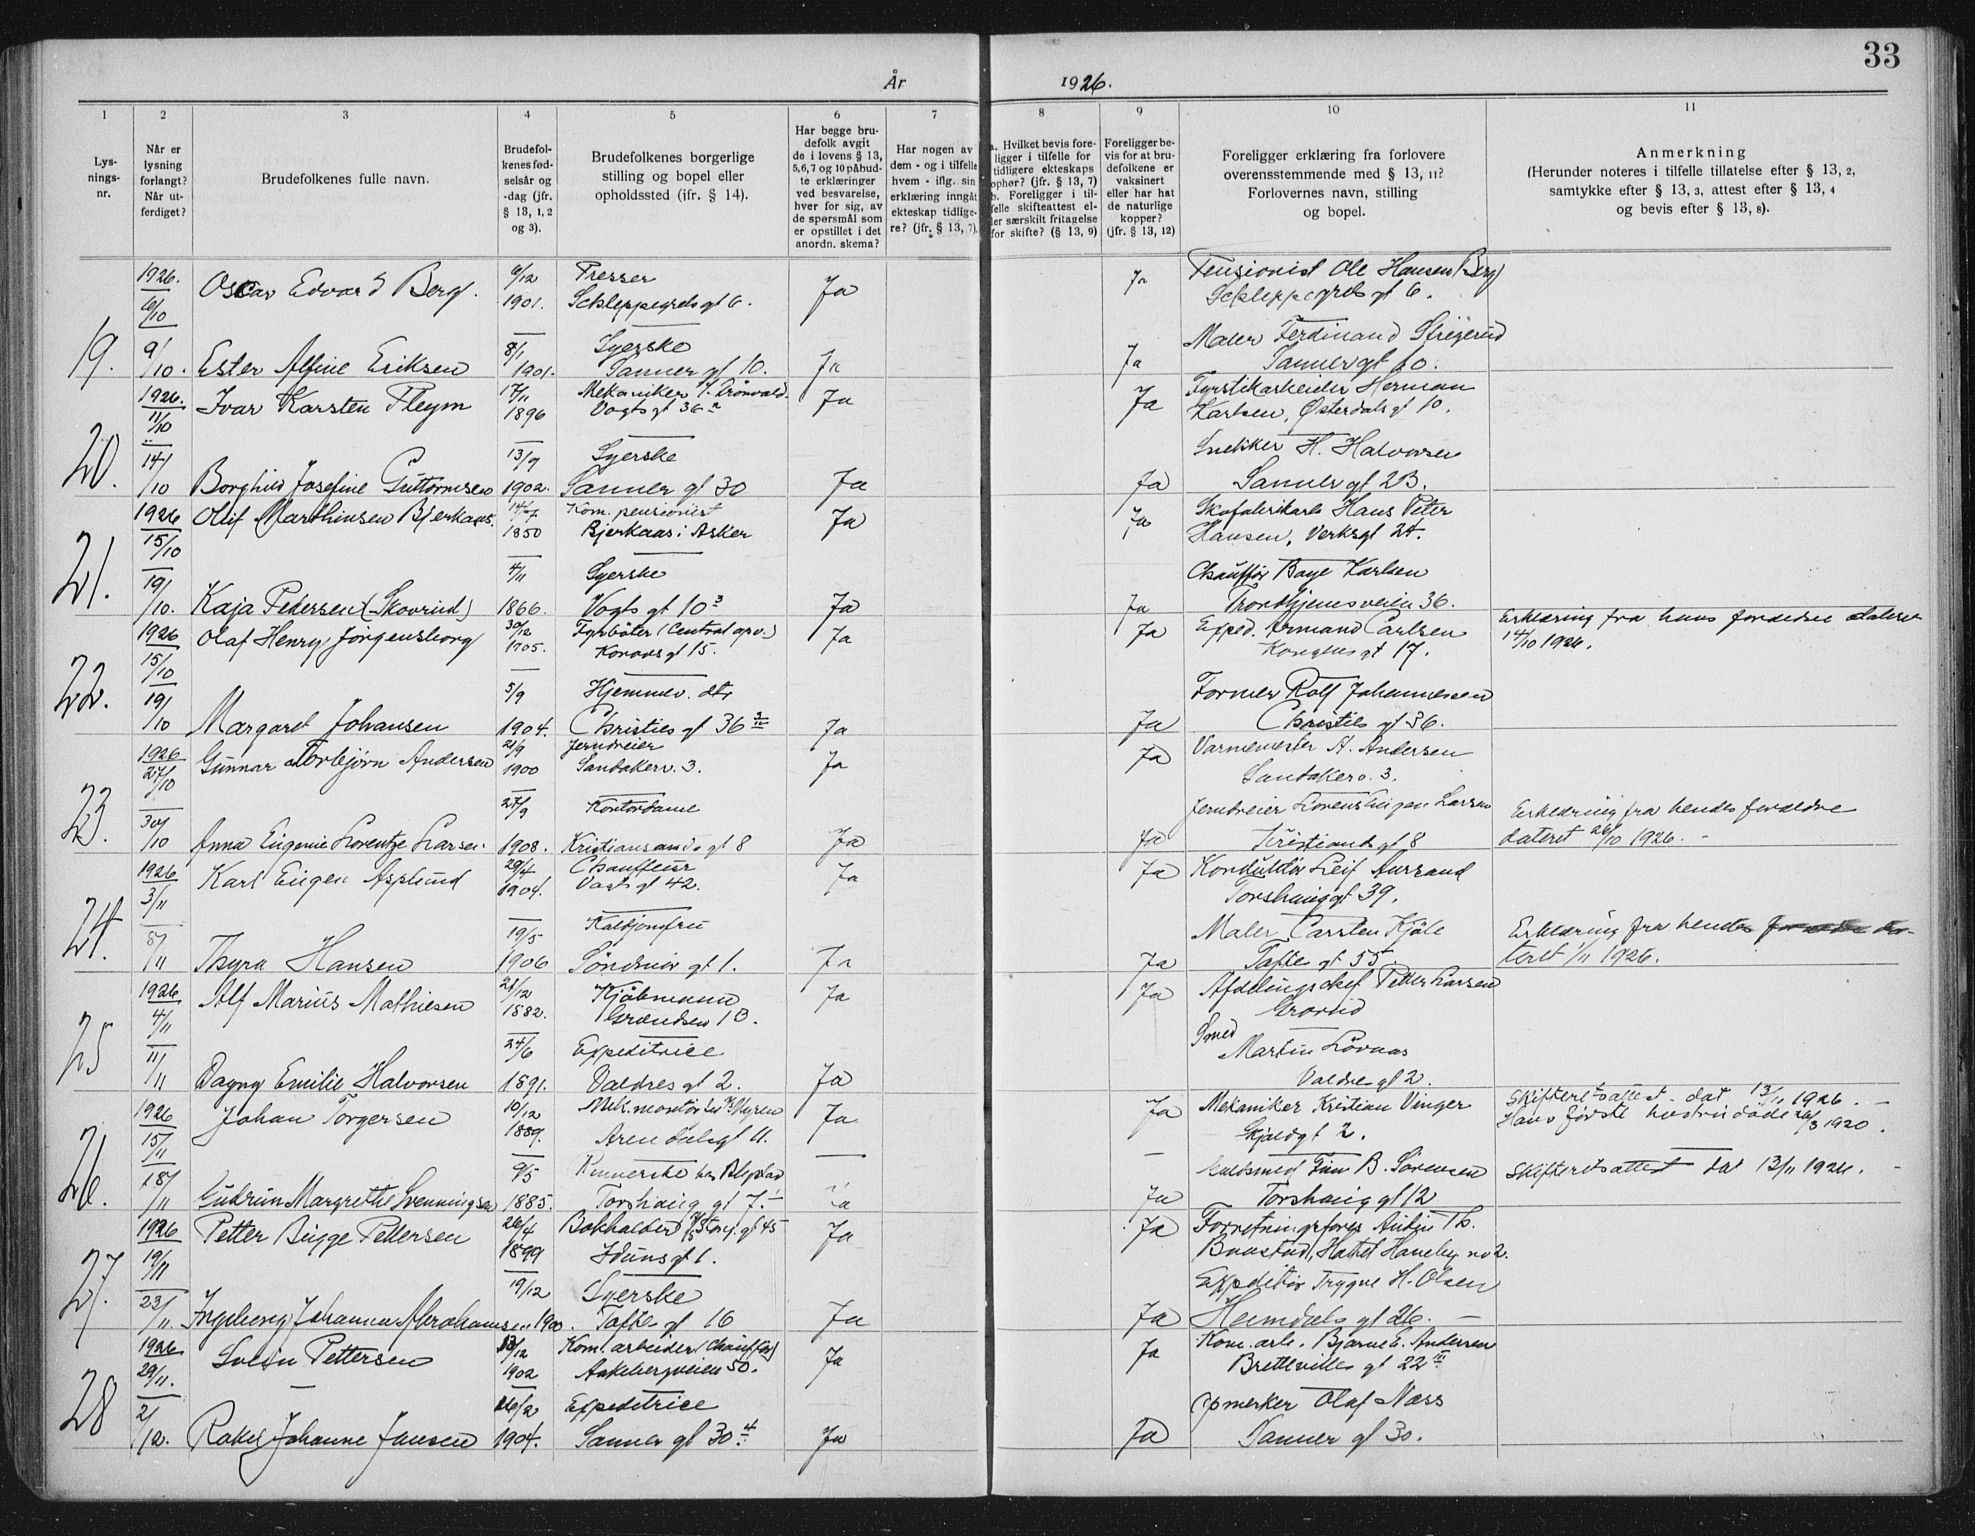 33
År 1926.
1 2 3 4 5 6 7 8 9 10 11
Lys-
nings-
nr.
Når er
lysning
forlangt?
Når ut-
ferdiget?
Brudefolkenes fulle navn.
Brudefol-
kenes fød-
selsår og
-dag (jfr.
§ 13, 1, 2
og 3).
Brudefolkenes borgerlige
stilling og bopel eller
opholdssted (ifr. § 14).
Har begge bru-
defolk avgit
de i lovens § 13,
5,6,7 og 10 påbud-
te erklæringer
ved besvarelse,
hver for sig, av
de spørsmål som
er opstillet i det
anordn. skema?
Har nogen av
dem - og i tilfelle
hvem - iflg. sin
erklæring inngåt
ekteskap tidlige-
re? (jfr. § 13, 7).
a. Hvilket bevis fore-
ligger i tilfelle for
tidligere ekteskaps
ophør? (jfr. § 13, 7)
b. Foreligger i til-
felle skifteattest el-
ler særskilt fritagelse
for skifte? (§ 13, 9)
Foreligger be-
vis for at bru-
defolkene er
vaksinert
eller har hat
de naturlige
kopper?
(jfr. § 13, 12)
Foreligger erklæring fra forlovere
overensstemmende med § 13, 11?
Forlovernes navn, stilling
og bopel.
Anmerkning
(Herunder noteres i tilfelle tillatelse efter § 13, 2,
samtykke efter § 13, 3, attest efter § 13, 4
og bevis efter § 13, 8).
19.
1926. 6/10
Oscar Edvard Berg.
6/12 1901.
Presser
Schleppegrels gt 6.
Ja
Ja
Pensionist Ole Hansen Berg
Schleppegrels gt 6.
9/10.
Ester Alfine Eriksen
8/1 1901.
Syerske
Sanner gt 10.
Ja
Ja
Maler Ferdinand
Sanner gt 10.
20.
1926. 11/10
Ivar Karsten Fleym
17/11 1896
Mekaniker
Vogts gt 36
Ja
Ja
Fyrstikarbeider Herman
Karlsen, Østerdals gt 10.
14/10
Borghild Josefine Guttormsen
13/9 1902.
Syerske
Sanner gt 30
Ja
Ja
Snekker H. Halvorsen
Sanner gt 2B.
21.
1926 15/10
Olif Marthinsen Bjerkaas.
1850
Kom. pensionist
Bjerkaas i Asker
Ja
Ja
Skofabrikarb Hans Peter
Hansen, Verksgt 24.
19/10.
Kaja Pedersen (Skovrud)
4/11 1866.
Syerske
Vogts gt 10 3
Ja
Ja
Chauffør Karlsen
Trondhjemsveien 36.
22.
1926 15/10
Olaf Henry Jørgensborg
30/12 1905.
Fyrbøter (Central opv.)
gt 15.
Ja
Ja
Exped. Armand Carlsen
Kongens gt 17.
Erklæring fra hans forældre dateret
14/10 1926.
19/10
Margaret Johansen
5/9 1904.
Hjemmev. dtr
Christies gt 36
Ja
Ja
Former Rolf Johannessen
Christies gt 36.
23.
1926 27/10
Gunnar Torbjørn Andersen
21/9 1900
Jerndreier
Sandakerv. 3.
Ja
Ja
Varmemester A. Andersen
Sandakerv. 3.
30/10
Anna Eugenie Lorentze Larsen.
27/9 1908.
Kontordame
Kristiansands gt 8
Ja
Ja
Jerndreier Larsen
Kristiansds gt 8
Erklæring fra hendes forældre
dateret 26/10 1926. -
24.
1926 3/11
Karl Eugen Asplund
29/4 1904.
Chauffeur
Vogts gt 42.
Ja
Ja
Konduktør Leif Aursand
Torshaug gt 39.
5/11
Thyra Hansen
19/5 1906
Koldjomfru
Søndmør gt 1.
Ja
Ja
Maler Carsten Kjøle
Tofte gt 55.
Erklæring fra hendes
teret 1/11 1926.
25
1926 4/11
Alf Marius Mathiesen
21/12 1882.
Kjøbmann
Grændsen 1B.
Ja
Ja
Afdelingschef Petter Larsen
Grorud
11/11
Dagny Emilie Halvorsen
24/6 1891.
Expeditrice
Valdres gt 2.
Ja
Smed
Martin Løvnas
Valdres gt 2.
26.
1926 15/11
Johan Torgersen
10/12 1889.
Mek. montør Myren
Arendalsgt 11.
Ja
Ja
Mekaniker Kristian Vinger
Skjoldgt 2.
Skifteretsattest dat 13/11 1926. -
Hans første hustru døde 26/3 1920.
18/11
Gudrun Margrethe Svenningsen
9/5 1885.
Torshaug gt 7.
Ja
Ja
Guldsmed B. Sørensen
Torshaug gt 12
Skifteretsattest dat 13/11 1926. -
27.
1926 19/11
Petter Bugge Pettersen
26/4 1899
Bokholder gt 45
Iduns gt 1.
Ja
Ja
Forretningsfører Audun Th.
Hotel no 2.
23/11.
Ingeborg Johanna Abrahamsen
19/12 1900.
Syerske
Tofte gt 16
Ja
Ja
Expeditør Trygve H. Olsen
Heimdals gt 26. -
28
1926 29/11.
Svein Pettersen
13/12 1902
Kom. arbeider (Chauffør)
Aakebergveien 50.
Ja
Ja
Kom. arb. Bjarne E. Andersen
Brettevilles gt 22 III
2/12.
Rakel Johanne Jansen
26/2 1904.
Expeditrice
Sanner gt 30 4.
Ja
Ja
Opmerker Olaf Næss
Sanner gt 30.